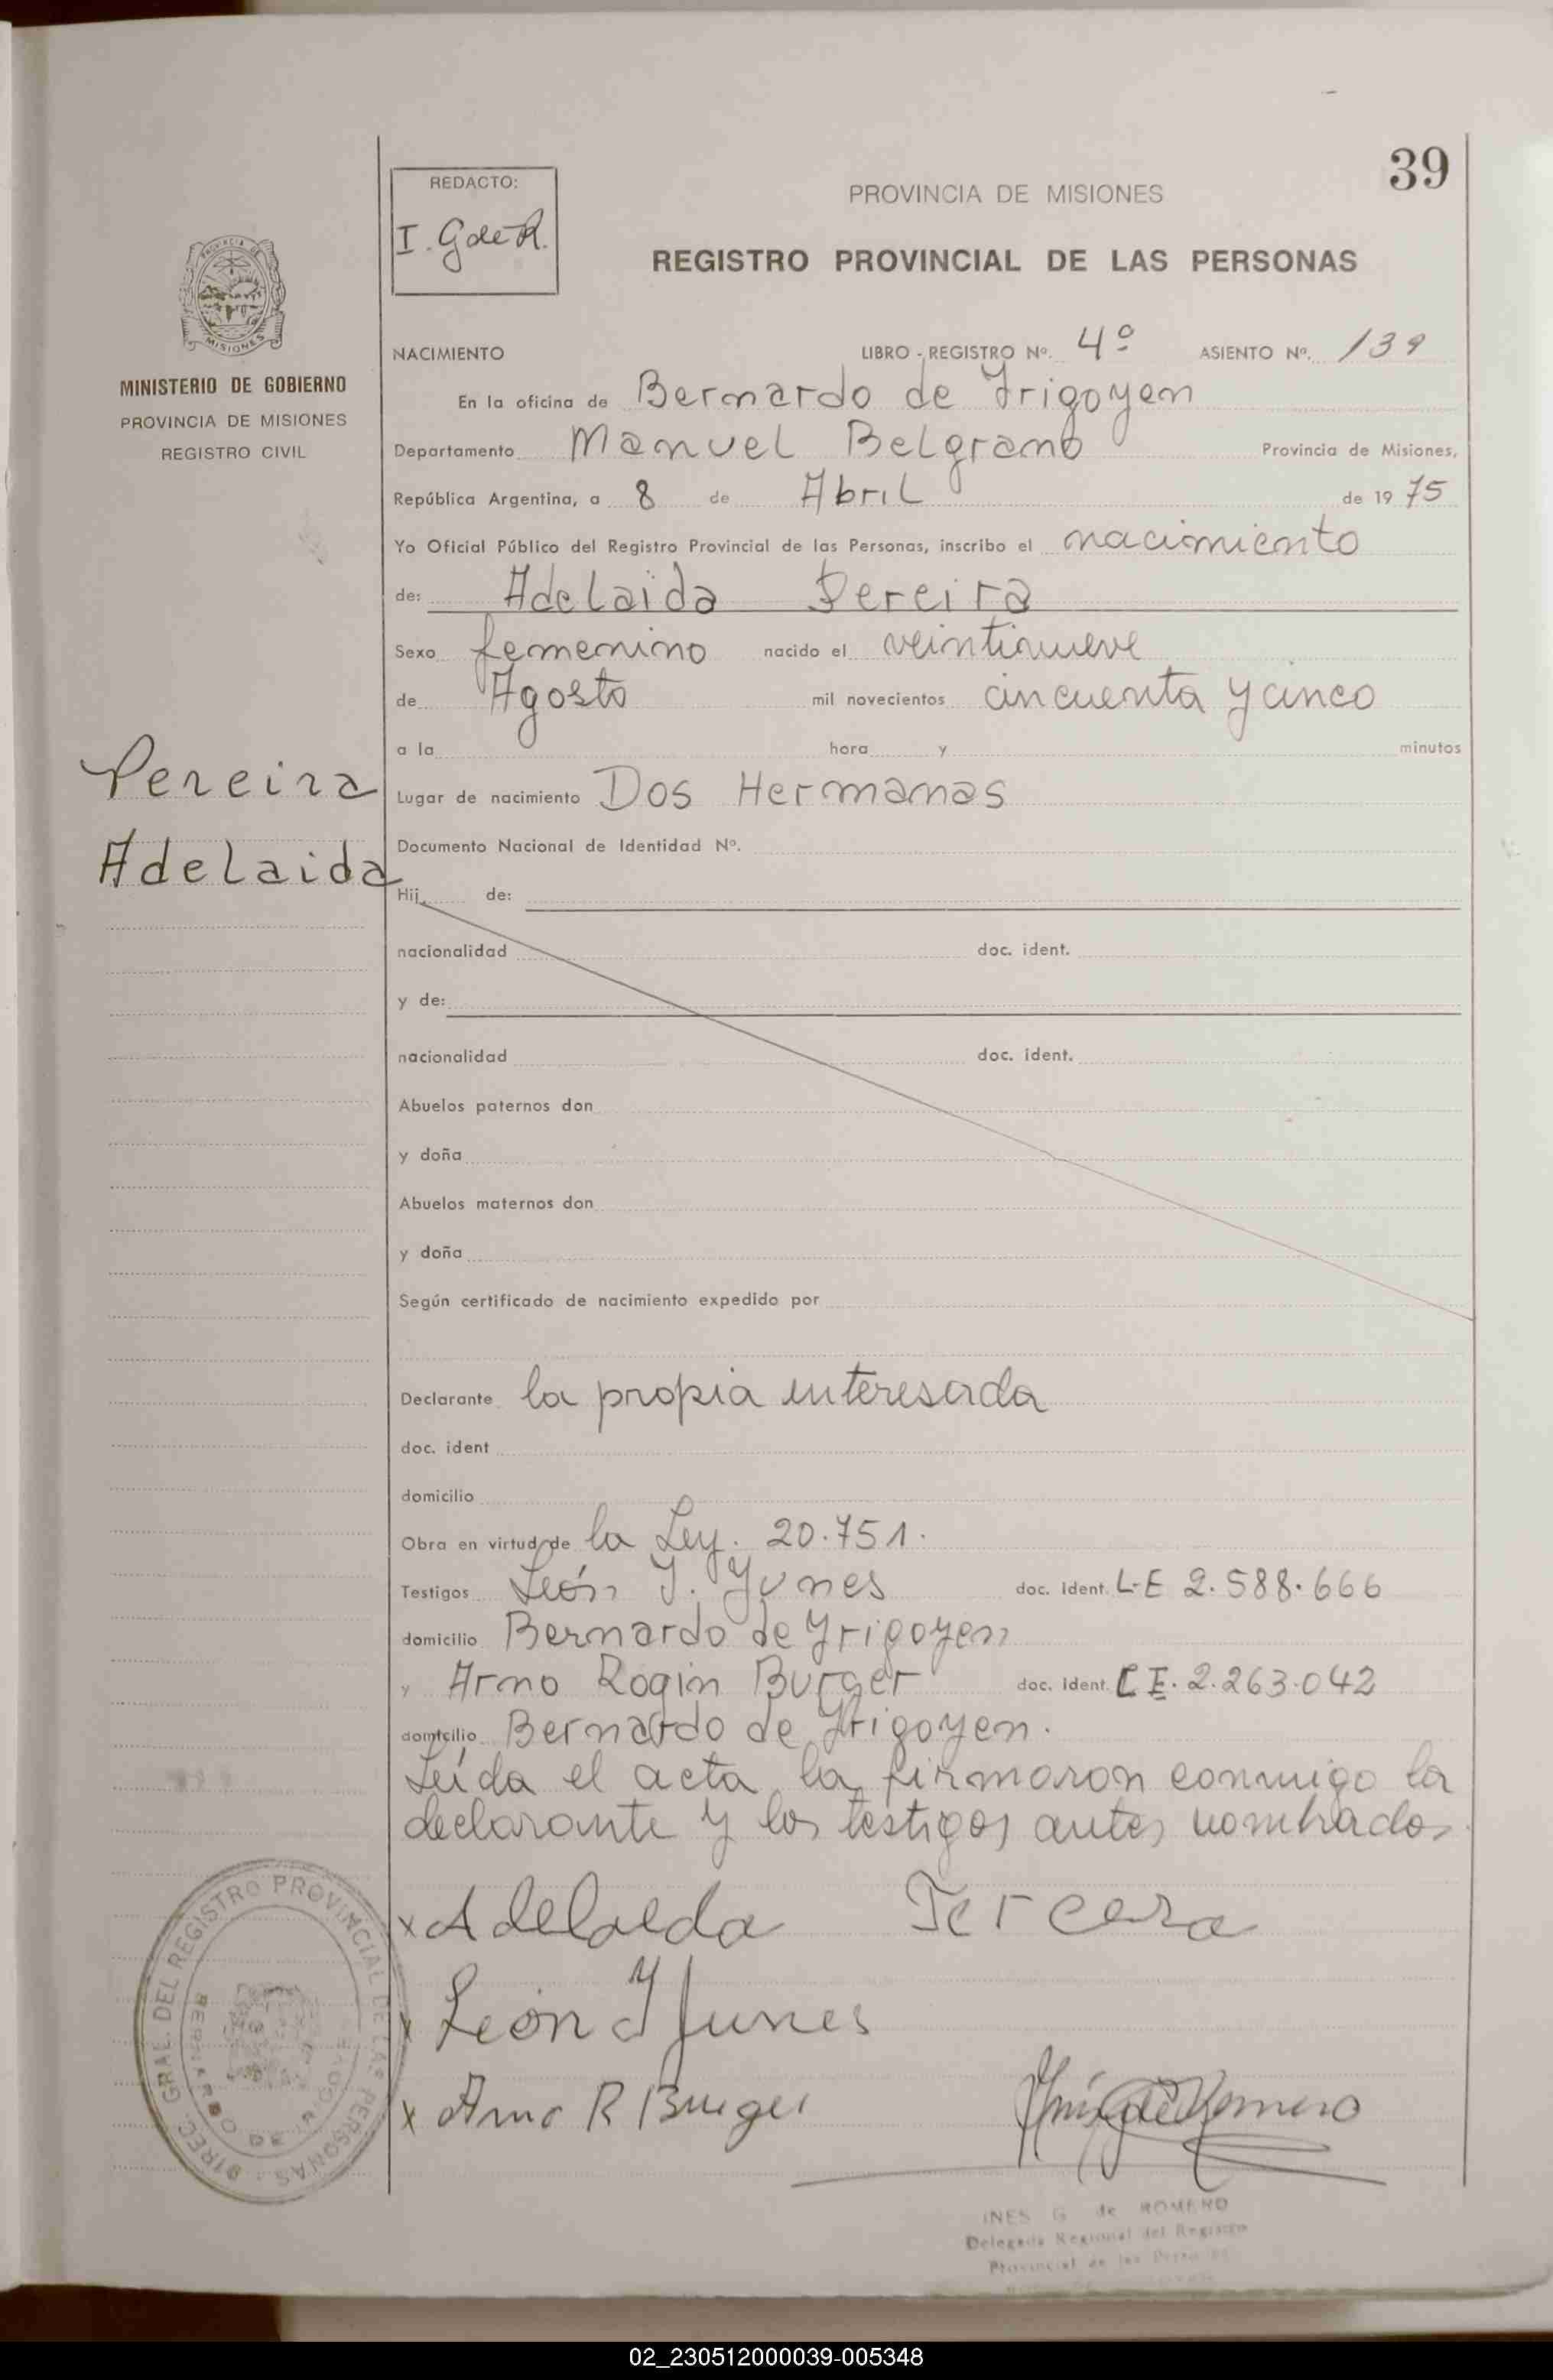 39
REDACTO:
I. G de R.
PROVINCIA DE MISIONES
REGISTRO PROVINCIAL DE LAS PERSONAS
MISIONES
MINISTERIO DE GOBIERNO
PROVINCIA DE MISIONES
REGISTRO CIVIL
NACIMIENTO LIBRO - REGISTRO Nº. 4º ASIENTO Nº. 139
En la oficina de Bernardo de Yrigoyen
Departamento Manuel Belgrano Provincia de Misiones,
República Argentina, a 8 de Abril de 1975
Yo Oficial Público del Registro Provincial de las Personas, inscribo el nacimiento
de: Adelaida Pereira
Sexo femenino nacido el veintinueve
de Agosto mil novecientos cincuenta y cinco
a la hora y minutos
Pereira
Adelaida
Lugar de nacimiento Dos Hermanas
Documento Nacional de Identidad Nº.
Hij de:
nacionalidad doc. ident.
y de:
nacionalidad doc. ident.
Abuelos paternos don
y doña
Abuelos maternos don
y doña
Según certificado de nacimiento expedido por
Declarante la propia interesada
doc. ident
domicilio
Obra en virtud de la Ley. 20.751.
Testigos León J. Yunes doc. ident. L-E 2.588.666
domicilio Bernardo de Yrigoyen
y Arno Rogin Burger doc. ident. C I. 2.263.042
domicilio Bernardo de Yrigoyen.
Leída el acta la firmaron conmigo la
declarante y los testigos antes nombrados.
x Adelaeda Tercera
x León J Junes
x Arno R Burger
DIREC. GRAL. DEL REGISTRO PROVINCIAL DE LAS PERSONAS
BERNARDO DE YRIGOYEN
INES G de ROMERO
Delegada Regional del Registro
Provincial de las
02_230512000039-005348